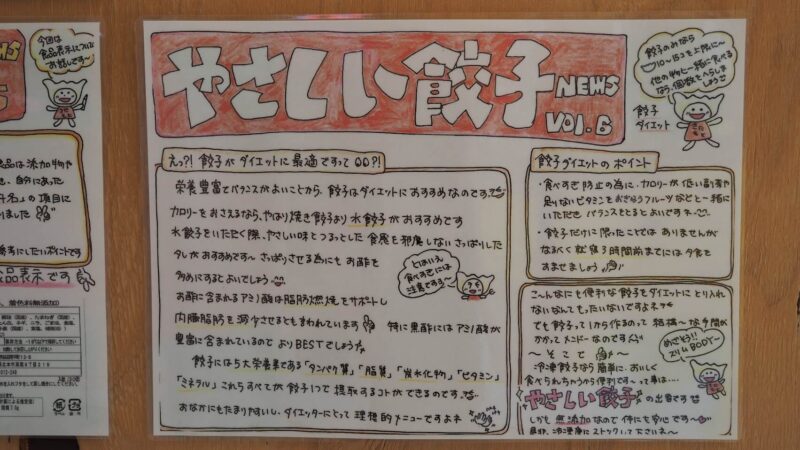 今回は
食品表示について
お話しです〜
やさしい餃子
NEWS
VOL.6
餃子のみなら
10〜15コを上限に〜
他の物と一緒に食べる
なら、個数をへらしま
しょう
餃子
ダイエット
えっ?! 餃子がダイエットに最適ですって?!
栄養豊富でバランスがよいことから、餃子はダイエットにおすすめなのです
カロリーをおさえるなら、やはり焼き餃子より水餃子がおすすめです
水餃子をいただく際、やさしい味とつるっとした食感を邪魔しないさっぱりした
タレがおすすめです〜 さっぱりさせる為にもお酢を
多めにするとよいでしょう
とはいえ
食べすぎには
注意です〜
お酢に含まれるアミノ酸は脂肪燃焼をサポートし
内臓脂肪を減少させるともいわれています 特に黒酢にはアミノ酸が
豊富に含まれているのでよりBESTでしょう
餃子には5大栄養素である「タンパク質」「脂質」「炭水化物」「ビタミン」
「ミネラル」これらすべてが餃子1つで摂取するコトができるのです
おなかにもたまりやすいし、ダイエッターにとって理想的メニューですよネ
餃子ダイエットのポイント
・食べすぎ防止の為に、カロリーが低い副菜や
足りないビタミンをおぎなうフルーツなどと一緒に
いただきバランスをとるとよいですネ
・餃子だけに限ったことではありませんが
なるべく就寝3時間前までには夕食を
すませましょう
こ〜んなにも便利な餃子をダイエットにとり入れ
ないなんてもったいないですよネ
でも餃子って1から作るのって結構〜な手間が
かかってメンドーなのですよ
〜そこで〜
めざそう!!
スリムBODY〜
冷凍餃子なら簡単に、おいしく
食べられちゃうから便利です〜って事は....
やさしい餃子の出番です
しかも無添加なので体にも安心です〜
是非、冷凍庫にストックして下さいネ〜
品は添加物や
き、自分にあった
名」の項目に
りました
参考にしたいポイントです
食品表示です